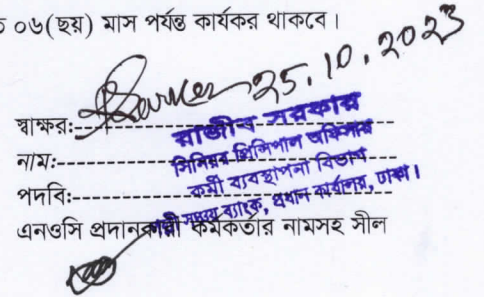 ০৬(ছয়) মাস পর্যন্ত কার্যকর থাকবে।
25.10.2023
স্বাক্ষর:
রাজীব সরকার
নাম:
সিনিয়র প্রিন্সিপাল অফিসার
পদবি:
কর্মী ব্যবস্থাপনা বিভাগ
ব্যাংক, প্রধান কার্যালয়, ঢাকা।
এনওসি প্রদানকারী কর্মকর্তার নামসহ সীল